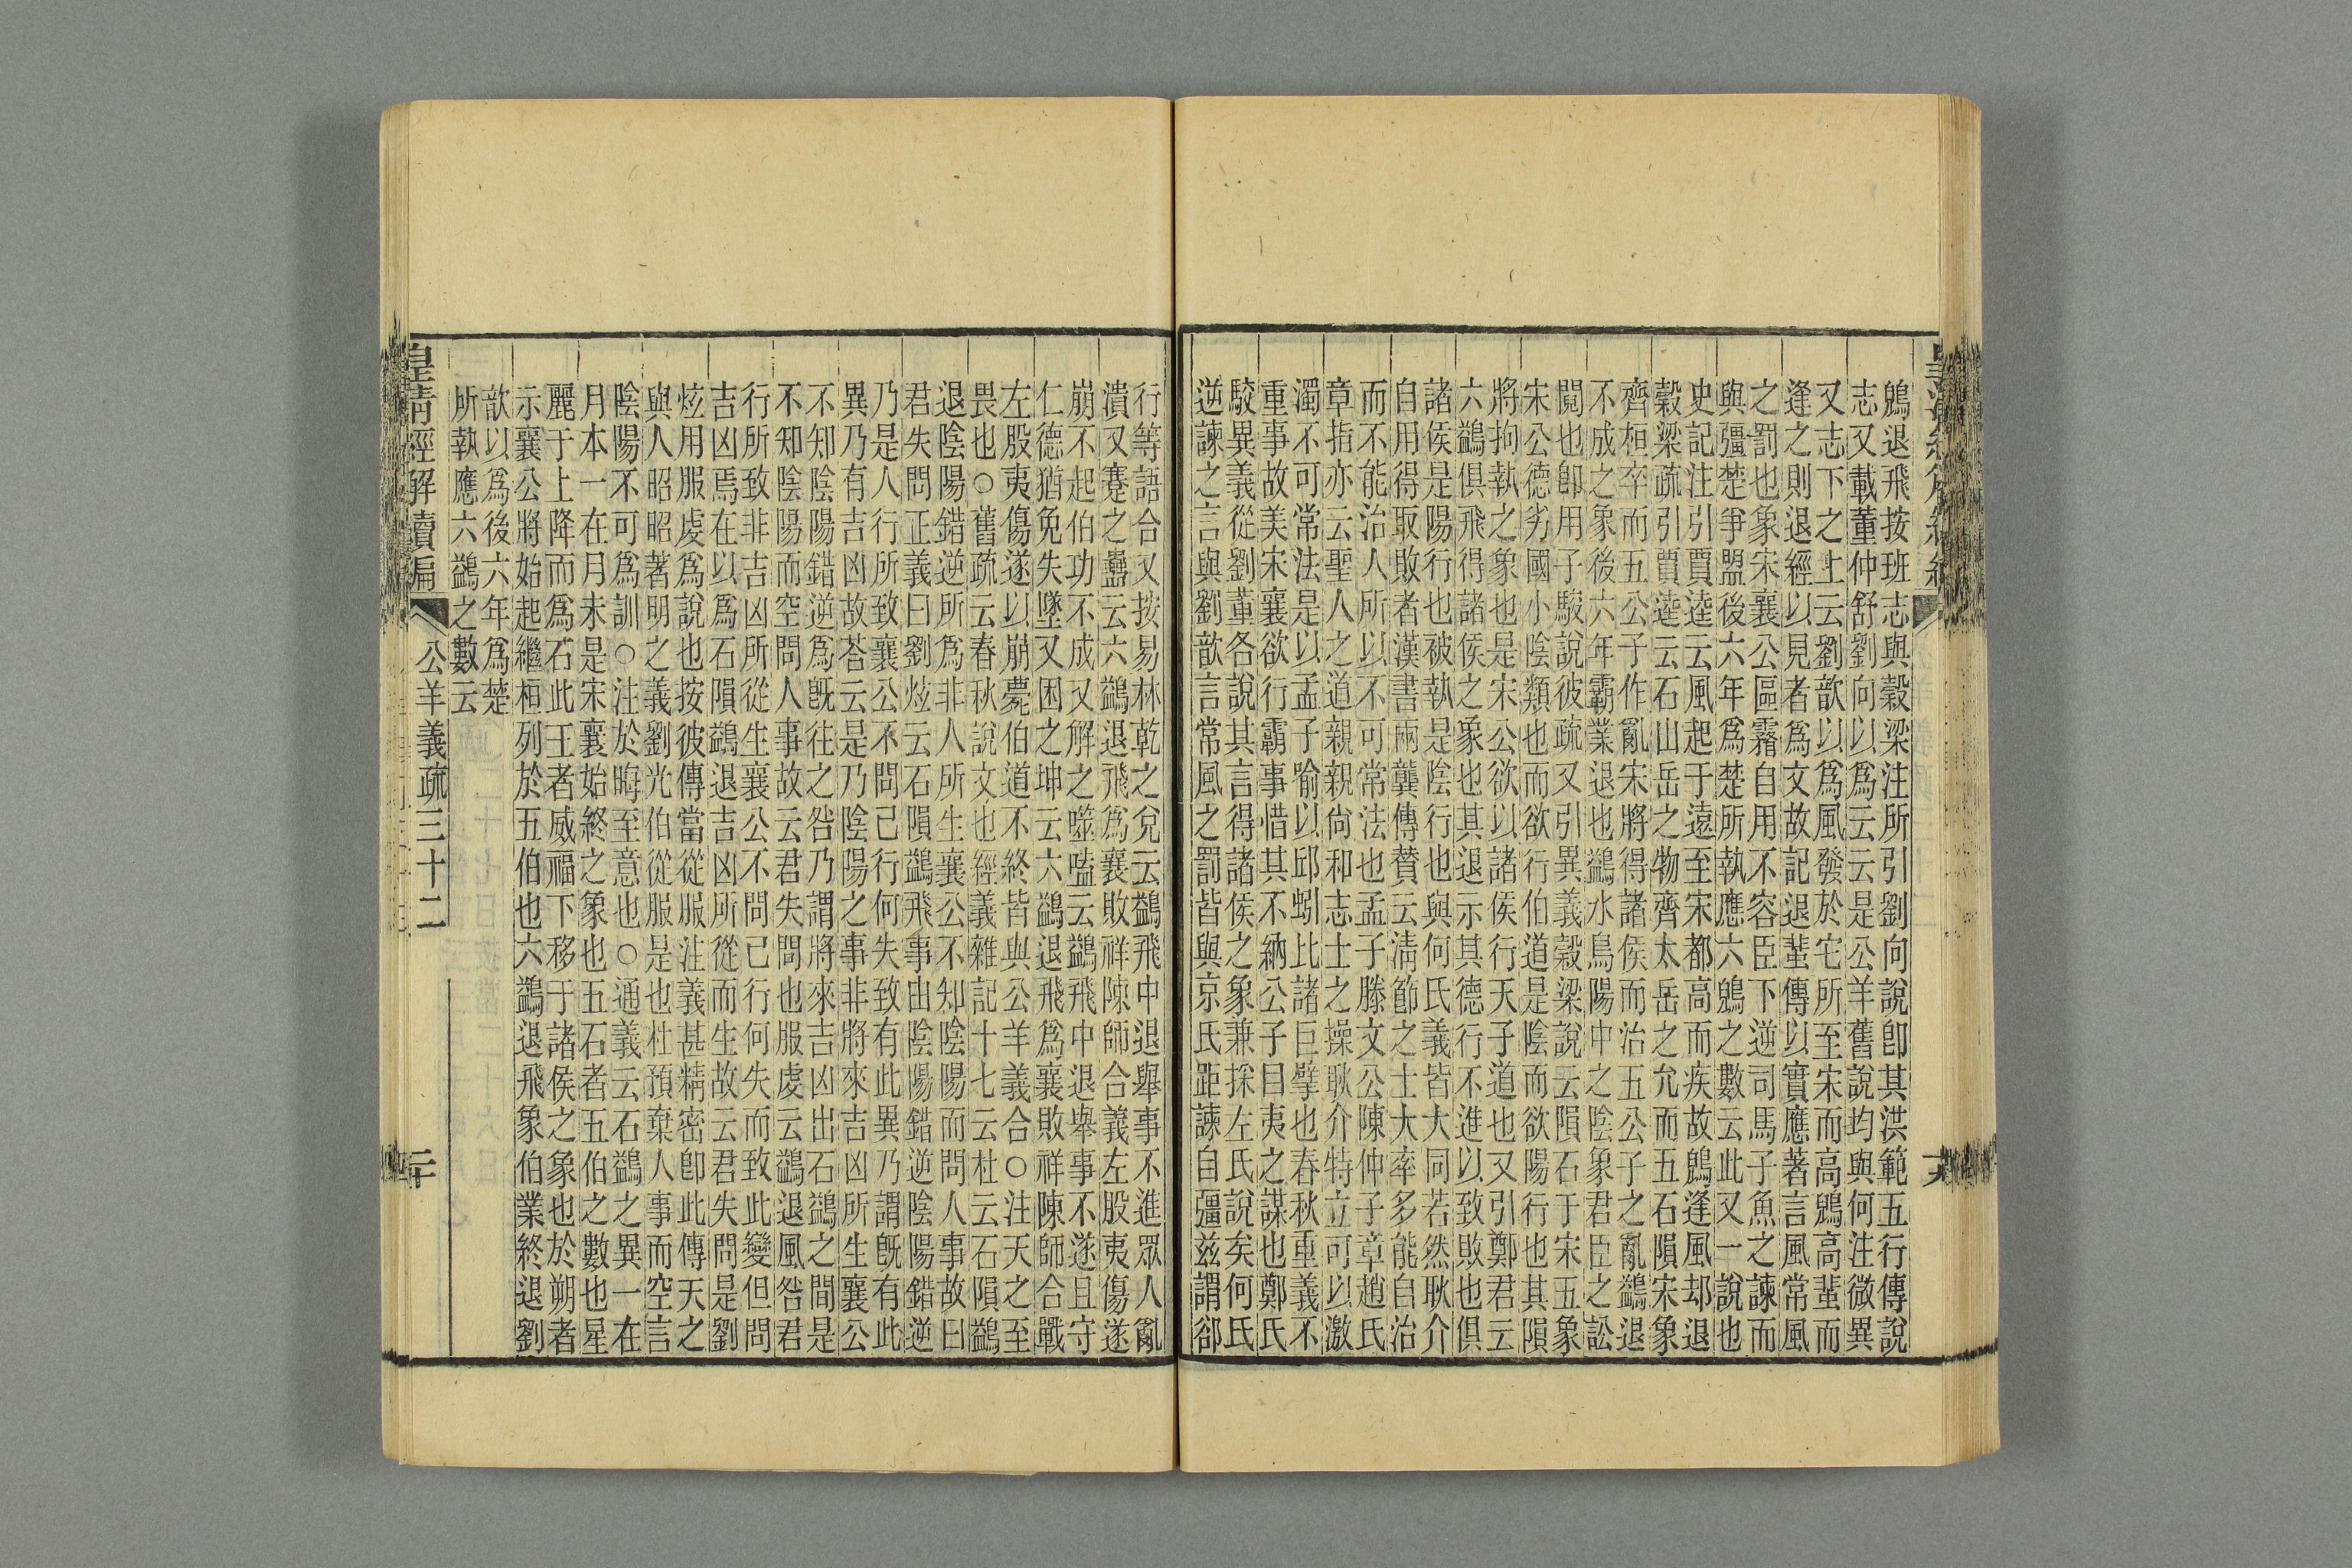 鶂退飛按班志與穀梁注所引劉向說卽其洪範五行傳說
志又載董仲舒劉向以爲云云是公羊舊說均與何注微異
又志下之上云劉歆以爲風發於宅所至宋而高鶂高蜚而
逢之則退經以見者爲文故記退蜚傳以實應著言風常風
之罰也象宋襄公區霿自用不容臣下逆司馬子魚之諫而
與彊楚爭盟後六年爲楚所執應六鶂之數云此又一說也
史記注引賈逵云風起于遠至宋都高而疾故鶂逢風却退
穀梁疏引賈逵云石山岳之物齊太岳之允而五石隕宋象
齊桓卒而五公子作亂宋將得諸侯而治五公子之亂鷁退
不成之象後六年霸業退也鷁水鳥陽中之陰象君臣之訟
閱也卽用子駿說彼疏又引異義穀梁說云隕石于宋五象
宋公德劣國小陰類也而欲行伯道是陰而欲陽行也其隕
將拘執之象也是宋公欲以諸侯行天子道也又引鄭君云
六鷁俱飛得諸侯之象也其退示其德行不進以致敗也俱
諸侯是陽行也被執是陰行也與何氏義皆大同若然耿介
自用得取敗者漢書兩龔傳贊云淸節之士大率多能自治
而不能治人所以不可常法也孟子滕文公陳仲子章趙氏
章指亦云聖人之道親親尙和志士之操耿介特立可以激
濁不可常法是以孟子喻以邱蚓比諸巨擘也春秋重義不
重事故美宋襄欲行霸事惜其不納公子目夷之謀也鄭氏
駮異義從劉董各說其言得諸侯之象兼採左氏說矣何氏
逆諫之言與劉歆言常風之罰皆與京氏距諫自彊兹謂卻
行等語合又按易林乾之兌云鷁飛中退舉事不進眾人亂
潰又蹇之蠱云六鷁退飛爲襄敗祥陳師合義左股夷傷遂
崩不起伯功不成又解之噬嗑云鷁飛中退舉事不遂且守
仁德猶免失墜又困之坤云六鷁退飛爲襄敗祥陳師合戰
左股夷傷遂以崩薨伯道不終皆與公羊義合○注天之至
畏也○舊疏云春秋說文也經義雜記十七云杜云石隕鷁
退陰陽錯逆所爲非人所生襄公不知陰陽而問人事故曰
君失問正義曰劉炫云石隕鷁飛事由陰陽錯逆陰陽錯逆
乃是人行所致襄公不問己行何失致有此異乃謂旣有此
異乃有吉凶故荅云是乃陰陽之事非將來吉凶所生襄公
不知陰陽錯逆爲旣往之咎乃謂將來吉凶出石鷁之間是
不知陰陽而空問人事故云君失問也服虔云鷁退風咎君
行所致非吉凶所從生襄公不問己行何失而致此變但問
吉凶焉在以爲石隕鷁退吉凶所從而生故云君失問是劉
炫用服虔爲說也按彼傳當從服注義甚精密卽此傳天之
與人昭昭著明之義劉光伯從服是也杜預棄人事而空言
陰陽不可爲訓○注於晦至意也○通義云石鷁之異一在
月本一在月末是宋襄始終之象也五石者五伯之數也星
麗于上降而爲石此王者威福下移于諸侯之象也於朔者
示襄公將始起繼桓列於五伯也六鷁退飛象伯業終退劉
歆以爲後六年爲楚
所執應六鷁之數云
皇淸經解續編
公羊義疏三十二
二十